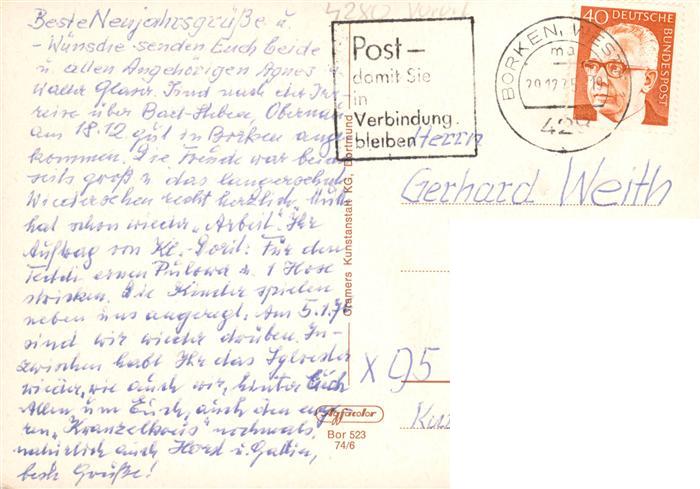 Beste Neujahrsgrüße u.
-Wünsche senden Euch beide
u. allen Angehörigen Agnes u.
Walter Glaser. Sind nach der Irr-
reise über Bad-Steben,
am 18.12 gut in Borken ange
kommen. Die Freude war beid
seits groß u das langersehnte
Wiedersehen recht herzlich. Mutti
hat schon wieder „Arbeit". Ihr
Auftrag von Kl.-Dorit: Für den
Teddi einen Pulower u. 1 Hose
stricken. Die Kinder spielen
neben uns angeregt. Am 5.1.7
sind wir wieder drüben. In-
zwischen habt Ihr das Sylvester
wieder, wie auch wir, hinter Euch
Allen, um Euch, auch den
nochmals,
natürlich auch Horst u. Gattin,
beste Grüße!
Post –
damit Sie
in
Verbindung
bleiben
BORKEN, WESTF
ma
29.12.75
428
40 DEUTSCHE
BUNDESPOST
Herrn
Gerhard Weith
X 95
Cramers Kunstanstalt KG, Dortmund
Agfacolor
Bor 523
74/6